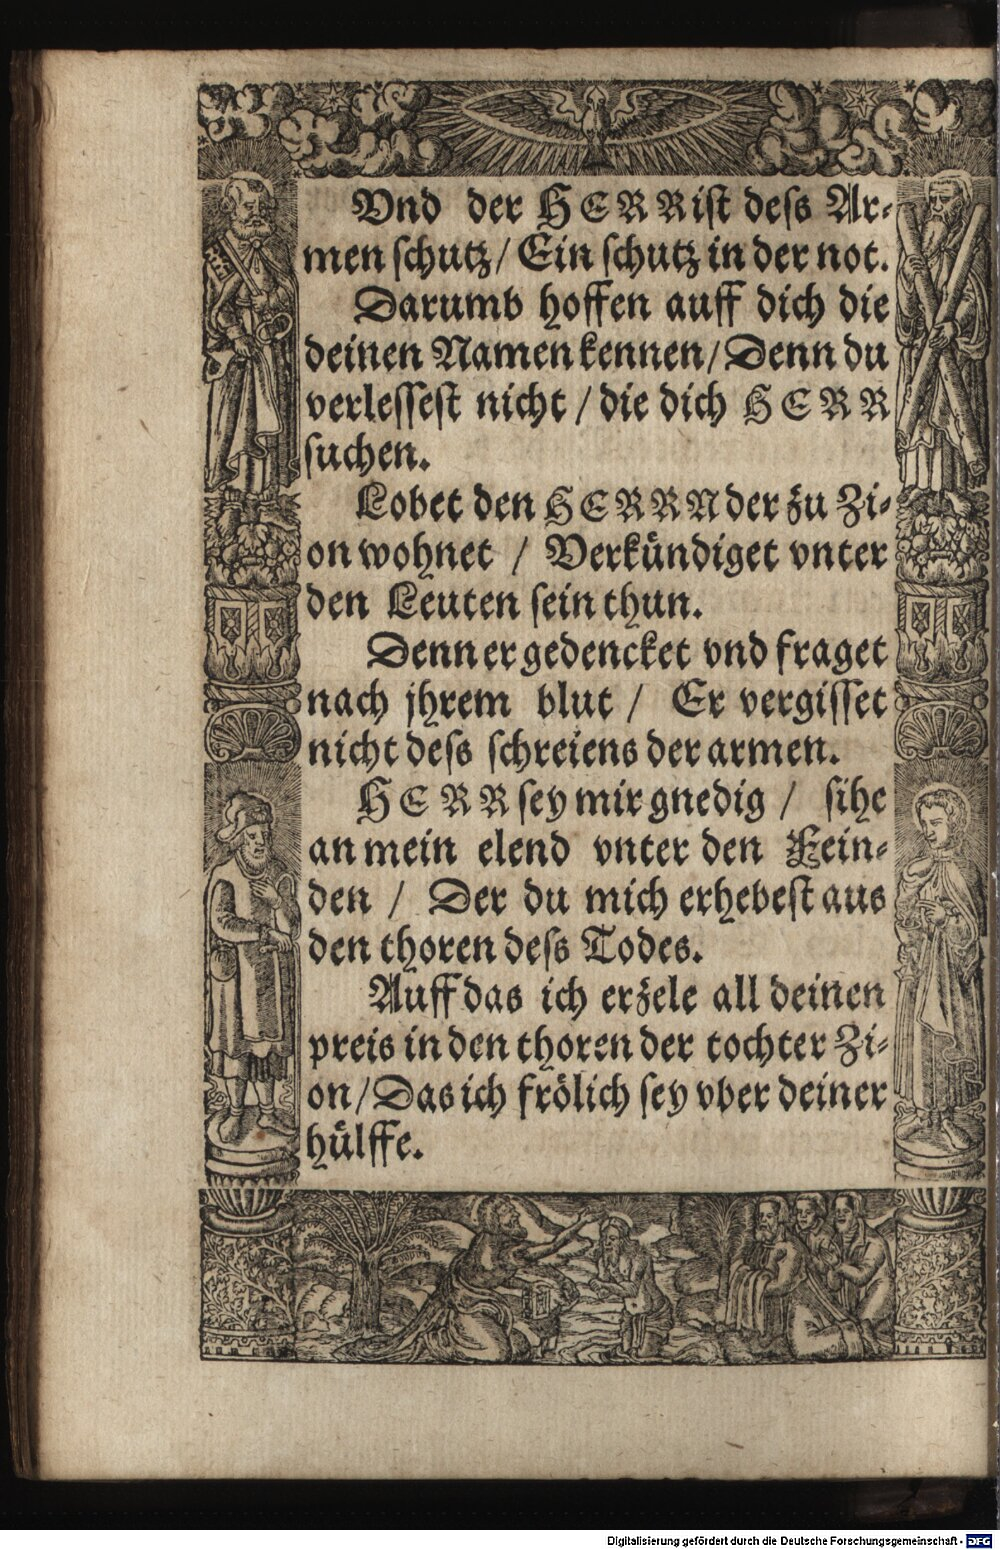 Vnd der HERR ist dess Ar-
men schutz / Ein schutz in der not.
Darumb hoffen auff dich die
deinen Namen kennen / Denn du
verlessest nicht / die dich HERR
suchen.
Lobet den HERRN der zu Zi-
on wohnet / Verkündiget vnter
den Leuten sein thun.
Denn er gedencket vnd fraget
nach jhrem blut / Er vergisset
nicht dess schreiens der armen.
HERR sey mir gnedig / sihe
an mein elend vnter den Fein-
den / Der du mich erhebest aus
den thoren dess Todes.
Auff das ich erzele all deinen
preis in den thoren der tochter Zi-
on / Das ich frölich sey vber deiner
hülffe.
Digitalisierung gefördert durch die Deutsche Forschungsgemeinschaft - DFG